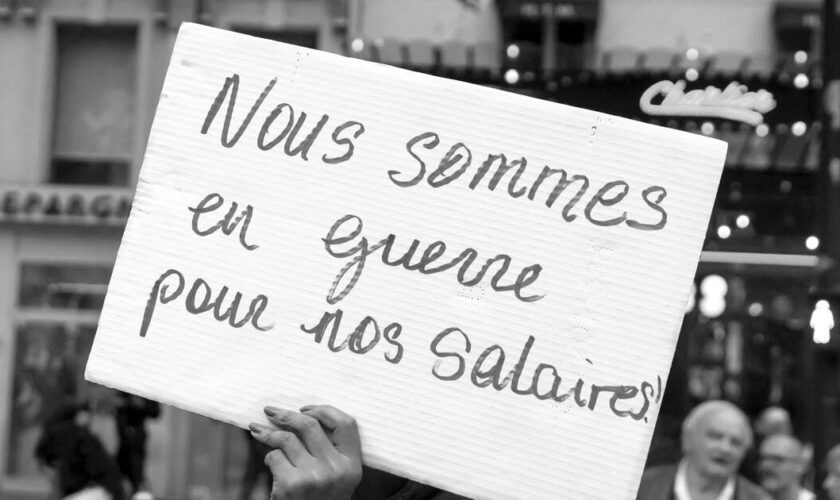 Nous sommes
en guerre
pour nos salaires!
Charlie
EPARGN